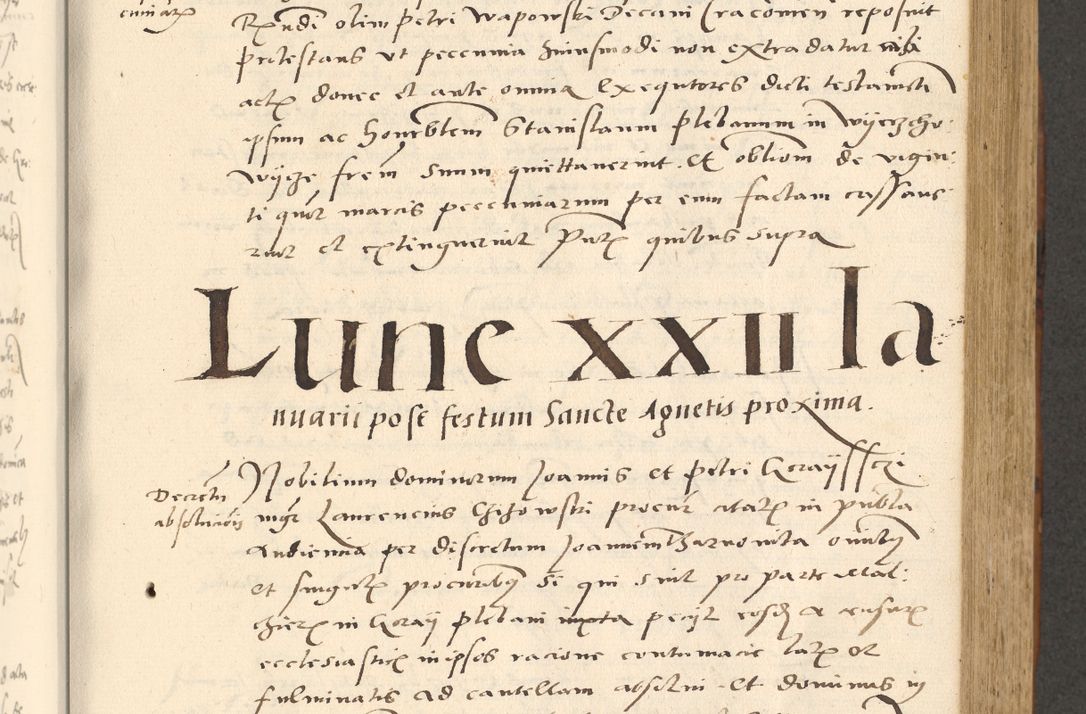 R(undi) olim Petri Wapowski Decani Cracovien reposuit
protestans ut peccunia huiusmodi non extradatur nisi
donec et ante omnia Exequtores dicti testamenti
ipsum ac honorabilem Stanislaum plebanum in Wyerzcho
wysze frem suum quiettaverint Et obliom de vigin
ti quor marcis pecuniarum per eum factam cassave
rint et extinguerint Pntx quibus supra
Lune xxii Ia
nuarii post festum Sancte Agnetis proxima.
Decretum
absolucionis
Nobilium dominorum Joannis et Petri Gorayssczi
mgr Laurencius Chichowski procur in publa
Audiencia per discretum Joannem omnibus
et singulis procuribus si qui sint pro parte Mal
chierx in Goray plebani peciit eosdem a censuris
ecclesiasticx in ipsos racione contumacie latx et
fulminatis ad cautellam absolvi Et dominus in